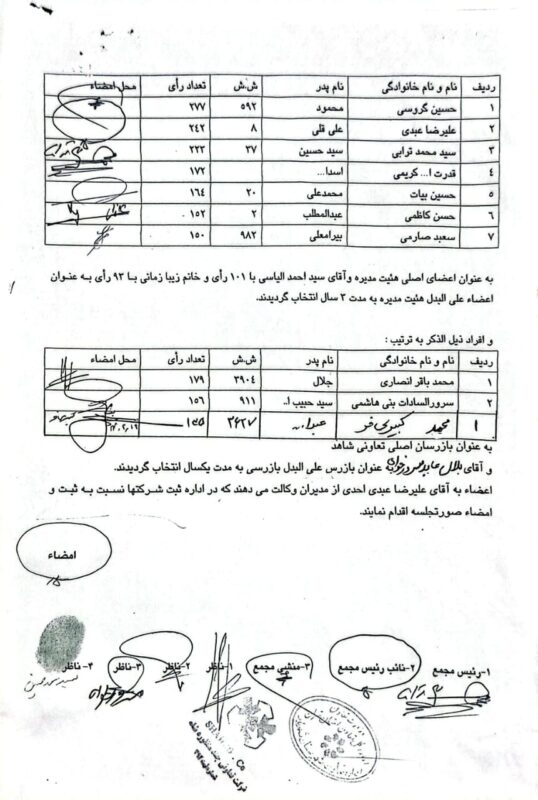 ردیف نام و نام خانوادگی نام پدر ش.ش تعداد رأی محل امضاء
۱ حسین گروسی محمود ۵۹۲ ۲۷۷
۲ علیرضا عبدی علی قلی ۸ ۲۴۲
۳ سید محمد ترابی سید حسین ۳۷ ۲۲۲
۴ قدرت ا... کریمی اسدا... ۱۷۲
۵ حسین بیات محمدعلی ۲۰ ۱۶۴
۶ حسن کاظمی عبدالمطلب ۲ ۱۵۲
۷ سعید صارمی بیرامعلی ۹۸۲ ۱۵۰
به عنوان اعضای اصلی هئیت مدیره وآقای سید احمد الیاسی با ۱۰۱ رأی و خانم زیبا زمانی با ۹۳ رأی به عنوان
اعضاء علی البدل هئیت مدیره به مدت ۳ سال انتخاب گردیدند.
و افراد ذیل الذکر به ترتیب :
ردیف نام و نام خانوادگی نام پدر ش.ش تعداد رأی محل امضاء
۱ محمد باقر انصاری جلال ۳۹۰۴ ۱۷۹
۲ سرورالسادات بنی هاشمی سید حبیب ا.. ۹۱۱ ۱۵۶
۱ محمد کبیری فر ۳۶۲۷
به عنوان بازرسان اصلی تعاونی شاهد
و آقای عنوان بازرس علی البدل بازرسی به مدت یکسال انتخاب گردیدند.
اعضاء به آقای علیرضا عبدی احدی از مدیران وکالت می دهند که در اداره ثبت شرکتها نسبت به ثبت و
امضاء صورتجلسه اقدام نمایند.
امضاء
۱-رئیس مجمع ۲-نائب رئیس مجمع ۳-منشی مجمع ۱-ناظر ۲-ناظر ۳-ناظر ۴-ناظر